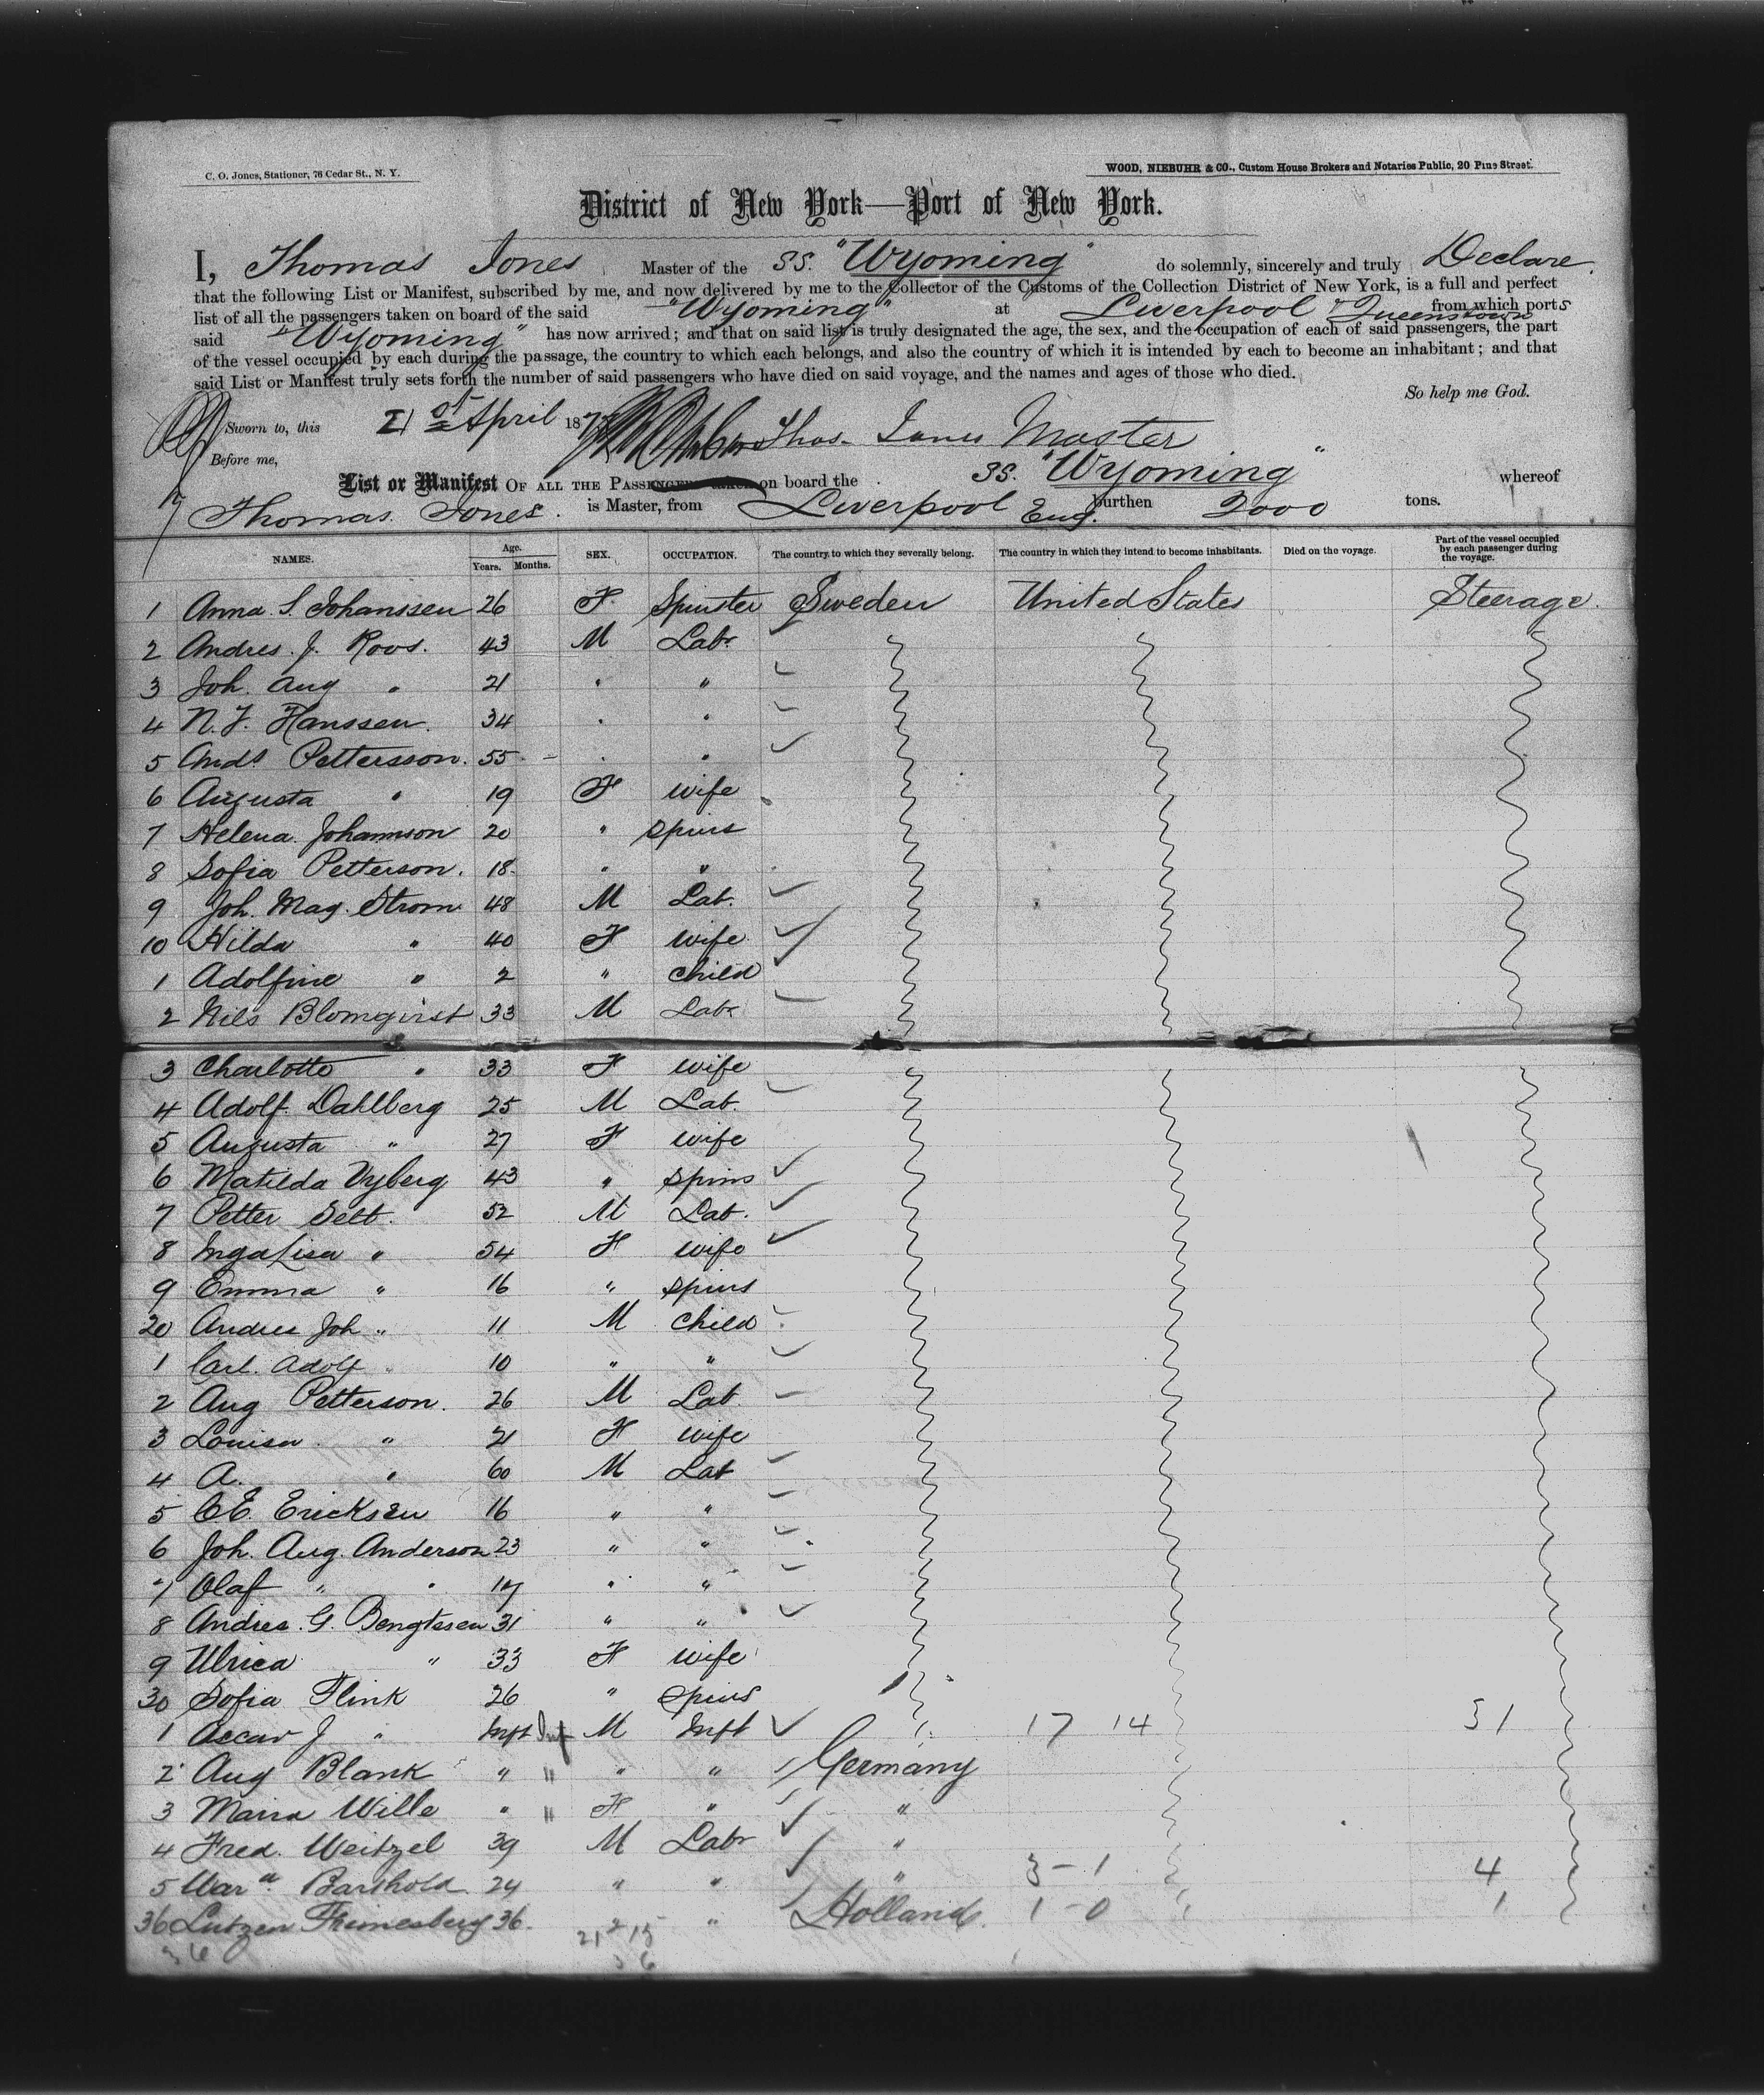 C. O. Jones, Stationer, 76 Cedar St., N. Y.
WOOD, NIEBUHR & CO., Custom House Brokers and Notaries Public, 20 Pine Street.
District of New York—Port of New York.
I, Thomas Jones Master of the SS. "Wyoming" do solemnly, sincerely and truly Declare
that the following List or Manifest, subscribed by me, and now delivered by me to the Collector of the Customs of the Collection District of New York, is a full and perfect
list of all the passengers taken on board of the said "Wyoming" at Liverpool & Queenstown from which ports
said "Wyoming" has now arrived; and that on said list is truly designated the age, the sex, and the occupation of each of said passengers, the part
of the vessel occupied by each during the passage, the country to which each belongs, and also the country of which it is intended by each to become an inhabitant; and that
said List or Manifest truly sets forth the number of said passengers who have died on said voyage, and the names and ages of those who died.
So help me God.
Sworn to, this 21st April 187 Thos. Jones Master
Before me,
List or Manifest OF ALL THE PASSENGERS taken on board the SS. "Wyoming" whereof
Thomas Jones. is Master, from Liverpool Eng. burthen 2000 tons.
NAMES. Age. Years. Months. SEX. OCCUPATION. The country to which they severally belong. The country in which they intend to become inhabitants. Died on the voyage. Part of the vessel occupied by each passenger during the voyage.
1 Anna S. Johanssen 26 F. Spinster Sweden United States Steerage.
2 Andres. J. Roos. 43 M Labr
3 Joh. Aug " 21 " "
4 N. J. Hanssen. 34 " "
5 Ands Pettersson. 55 " "
6 Augusta " 19 F wife
7 Helena Johannson 20 " spins
8 Sofia Petterson. 18 " "
9 Joh. Mag. Strom 48 M Lab.
10 Hilda " 40 F wife
1 Adolfine " 2 " child
2 Nils Blomqvist 33 M Labr
3 Charlotte " 33 F wife
4 Adolf Dahlberg 25 M Lab.
5 Augusta " 27 F wife
6 Matilda Nyberg 43 " spins
7 Petter Sett. 52 M Lab.
8 IngaLisa " 54 F wife
9 Emma " 16 " spins
20 Andres Joh " 11 M child
1 Carl. Adolf " 10 " "
2 Aug Petterson. 26 M Lab
3 Louisa " 21 F wife
4 A. " 60 M Lab
5 C.E. Ericksen 16 " "
6 Joh. Aug. Anderson 23 " "
7 Olaf " " 17 " "
8 Andres. G. Bengtssen 31 " "
9 Ulrica " 33 F wife
30 Sofia Flink 26 " spins
1 Oscar J " Inft Inf M Inft 17 14 31
2 Aug Blank " " " " Germany
3 Maria Wille " " F " "
4 Fred. Weitzel 39 M Labr "
5 Barthold 24 " " " 3 - 1 4
36 Lutzen 36. " Holland. 1 - 0 1
36 21 2 13
36